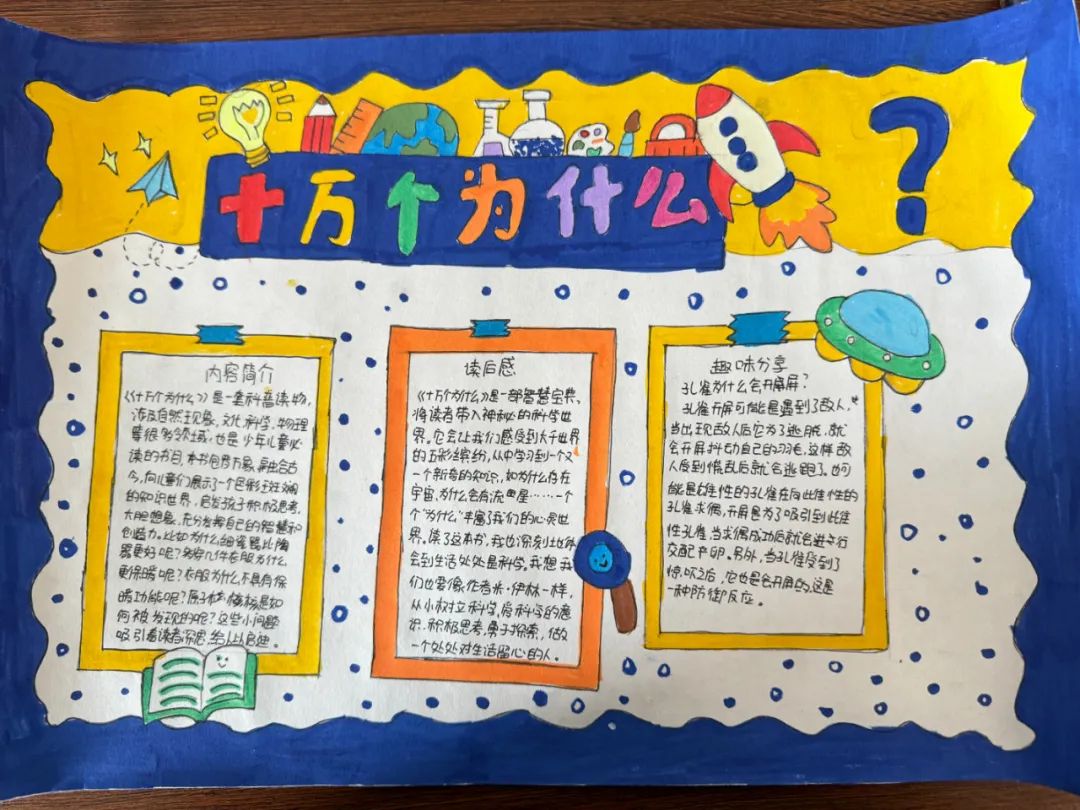 十万个为什么
?
内容简介
《十万个为什么》是一套科普读物,
涉及自然现象,文化科学,物理
等很多领域,也是少年儿童必
读的书目,本书包罗万象,融合古
今,向儿童们展示了一个色彩斑斓
的知识世界,启发孩子积极思考,
大胆想象,充分发挥自己的智慧和
创造力。比如为什么细瓷器比陶
器更好呢?为穿几件衣服为什么
更保暖呢?衣服为什么不具有保
暖功能呢?原子核 模样是如
何被发现的呢?这些小问题
吸引着读者深思,给人以启迪。
读后感
《十万个为什么》是一部智慧宝典,
将读者带入神秘的科学世
界。它会让我们感受到大千世界
的五彩缤纷,从中学习到一个又
一个新奇的知识,如为什么存在
宇宙,为什么会有流星……一个
个“为什么”丰富了我们的心灵世
界。读了这本书,我也深刻地体
会到生活处处是科学。我想,我
们也要像作者米·伊林一样,
从小树立科学,爱科学的意
识,积极思考,勇于探索,做
一个处处对生活留心的人。
趣味分享
孔雀为什么会开屏?
孔雀开屏可能是遇到了敌人,
当出现敌人后它为了逃脱,就
会开屏抖动自己的羽毛,这样敌
人感到慌乱后就会逃跑了。也可
能是雄性的孔雀在向雌性的
孔雀求偶,开屏是为了吸引到此雌
性孔雀,当求偶成功后就会进行
交配产卵。另外,当孔雀受到了
惊吓之后,它也是会开屏的,这是
一种防御反应。